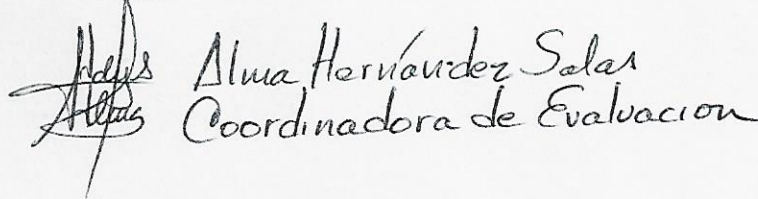 Alma Hernández Salas
Coordinadora de Evaluacion